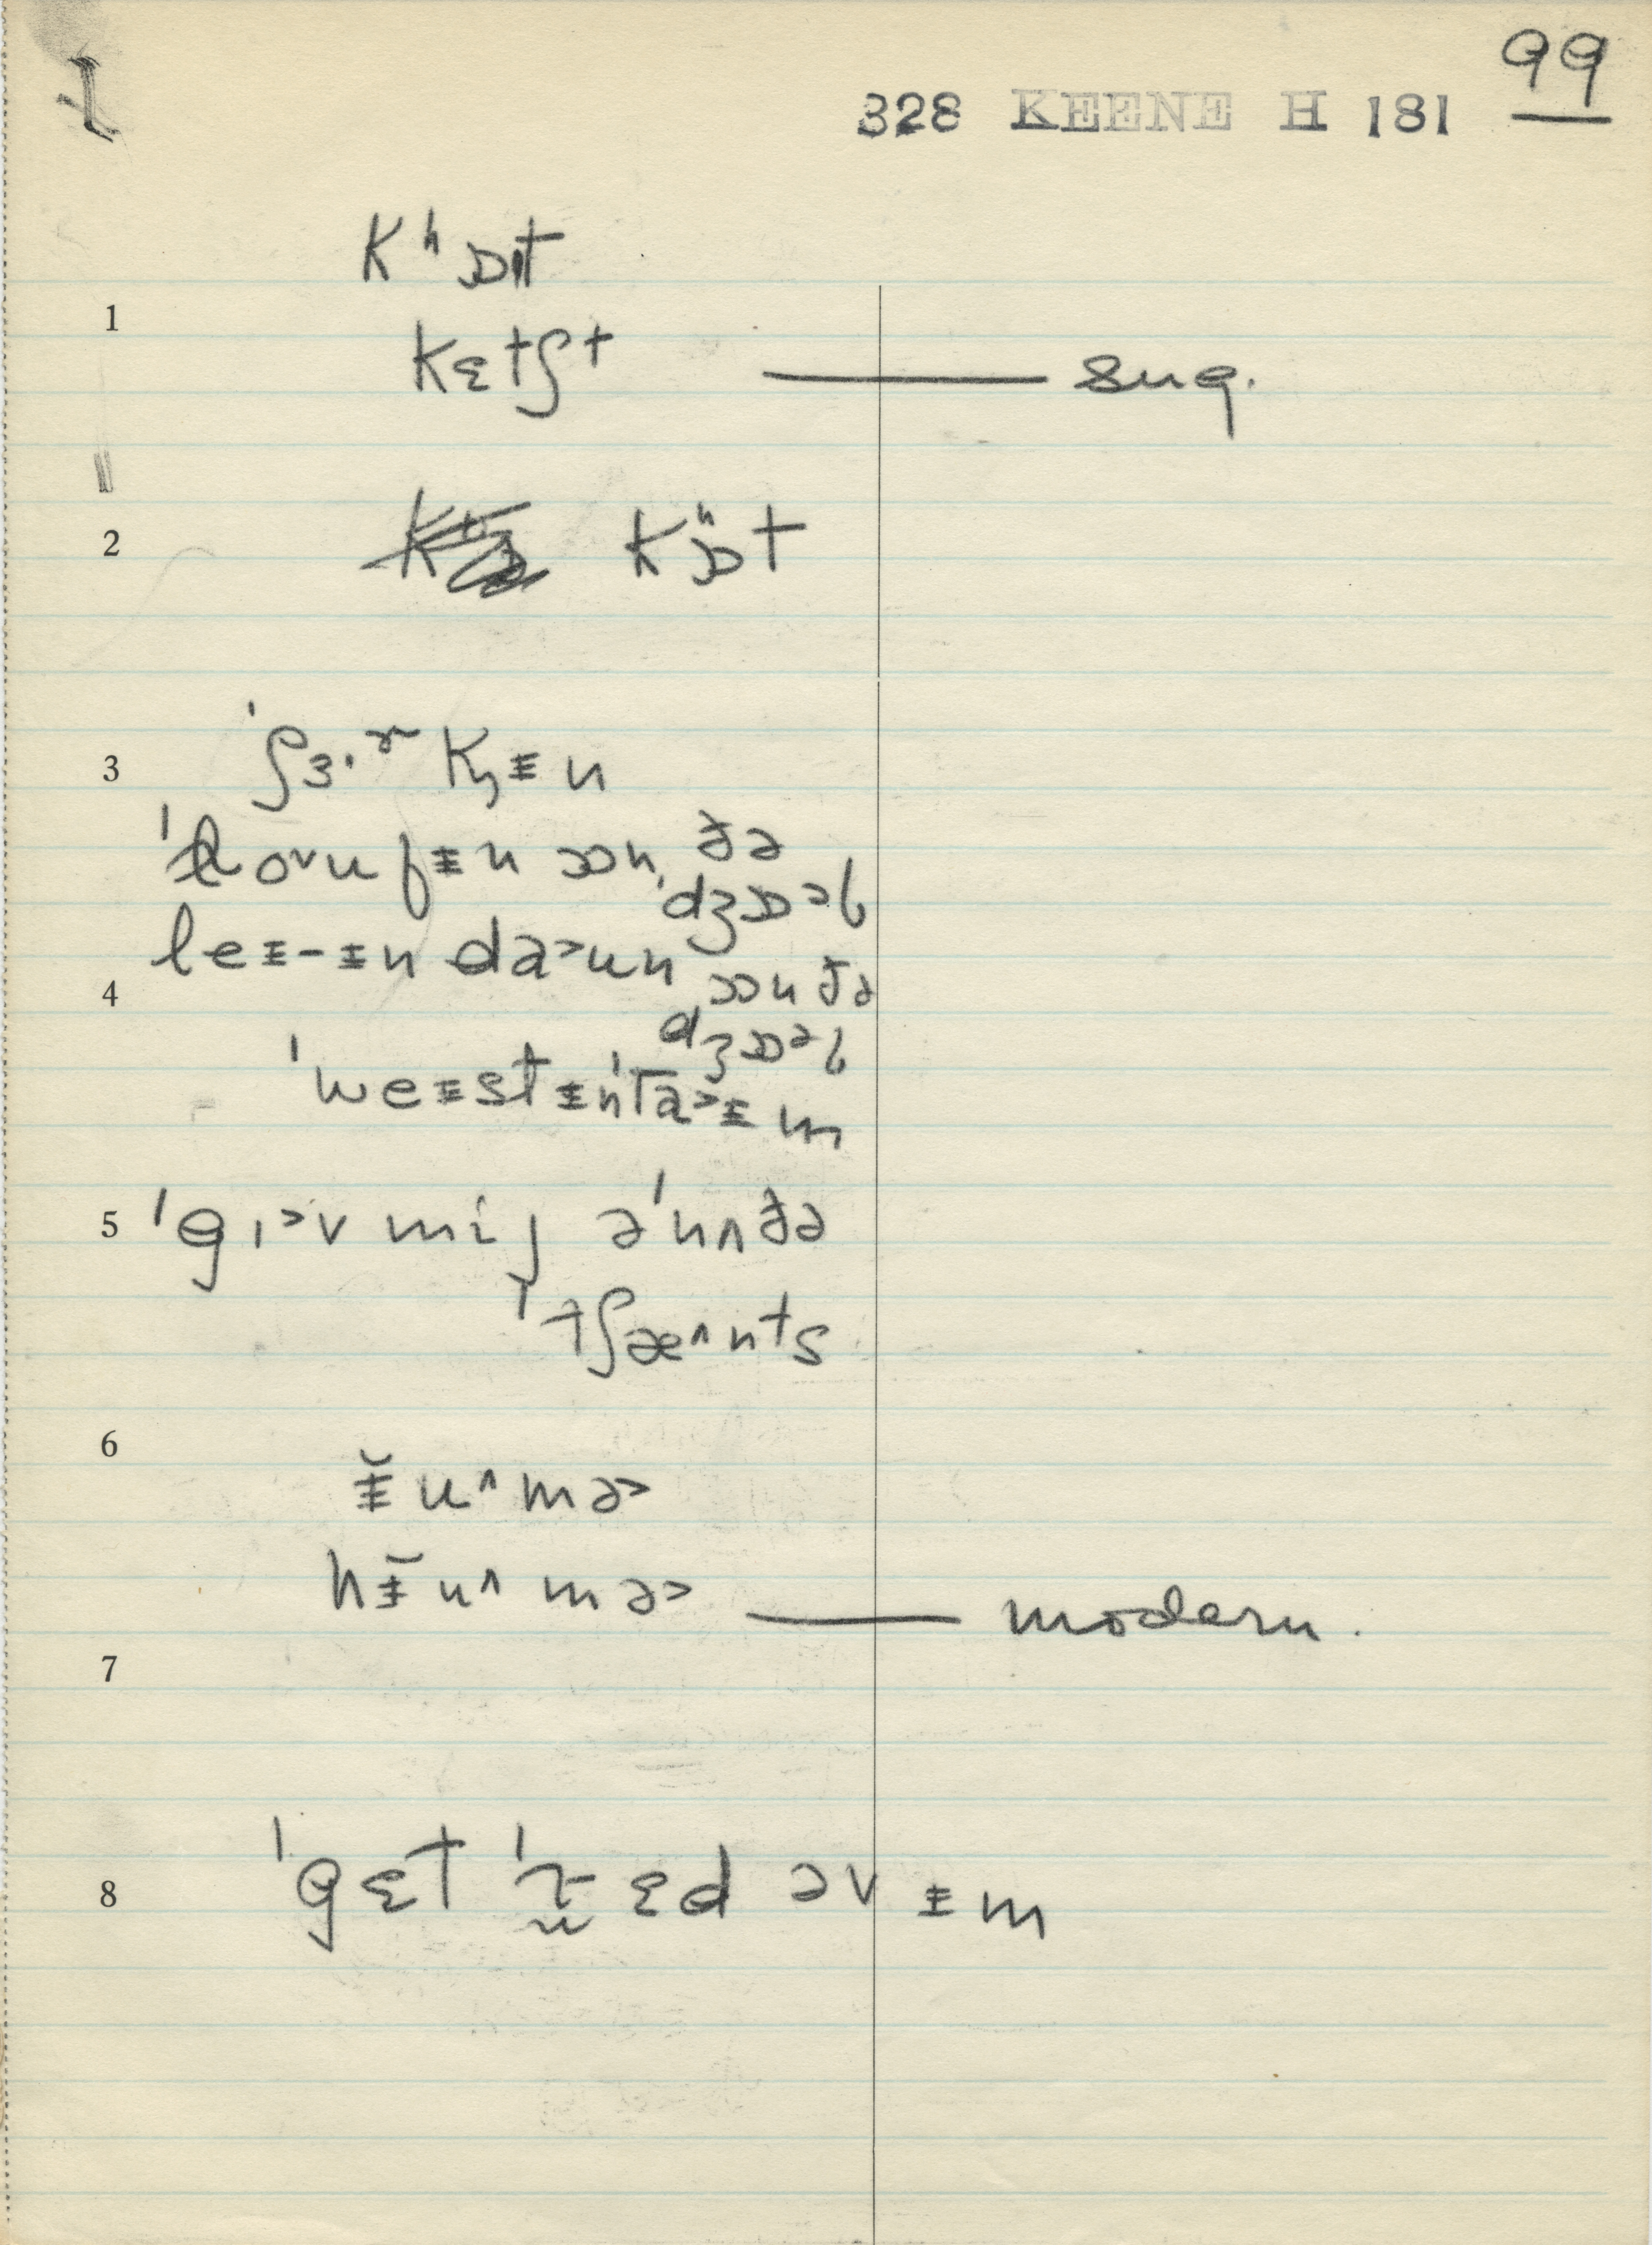 99
328 KEENE H 181
Kʰɒt
1
kɛtʃt — sug.
2 kʰɒt
3 ˈʃɜ·ʳkŋɪn
ˈloᵛufɪn ɒn ðə
ˈdʒɒᵊb
leɪ-ɪn daᵓun ɒn ðə
4 dʒɒᵊb
ˈweɪstɪnˈtaᵓɪm
5 ˈgɪᵓv mij əˈnʌðə
ˈtʃæᶺnts
6
ɪ̆u^mə>
hɪ̆u^mə> — modern.
7
8 ˈgɛt ˈr̰ɛd əv ɪm